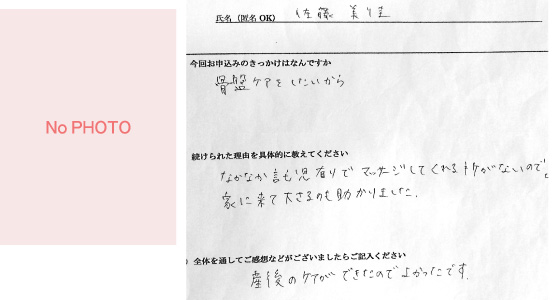 No PHOTO
氏名（匿名OK） 佐藤 美佳
今回お申込みのきっかけはなんですか
骨盤ケアをしたいから
続けられた理由を具体的に教えてください
なかなか託児有りでマッサージしてくれるトケがないので、
家に来て下さるのも助かりました。
全体を通してご感想などがございましたらご記入ください
産後のケアができたのでよかったです。